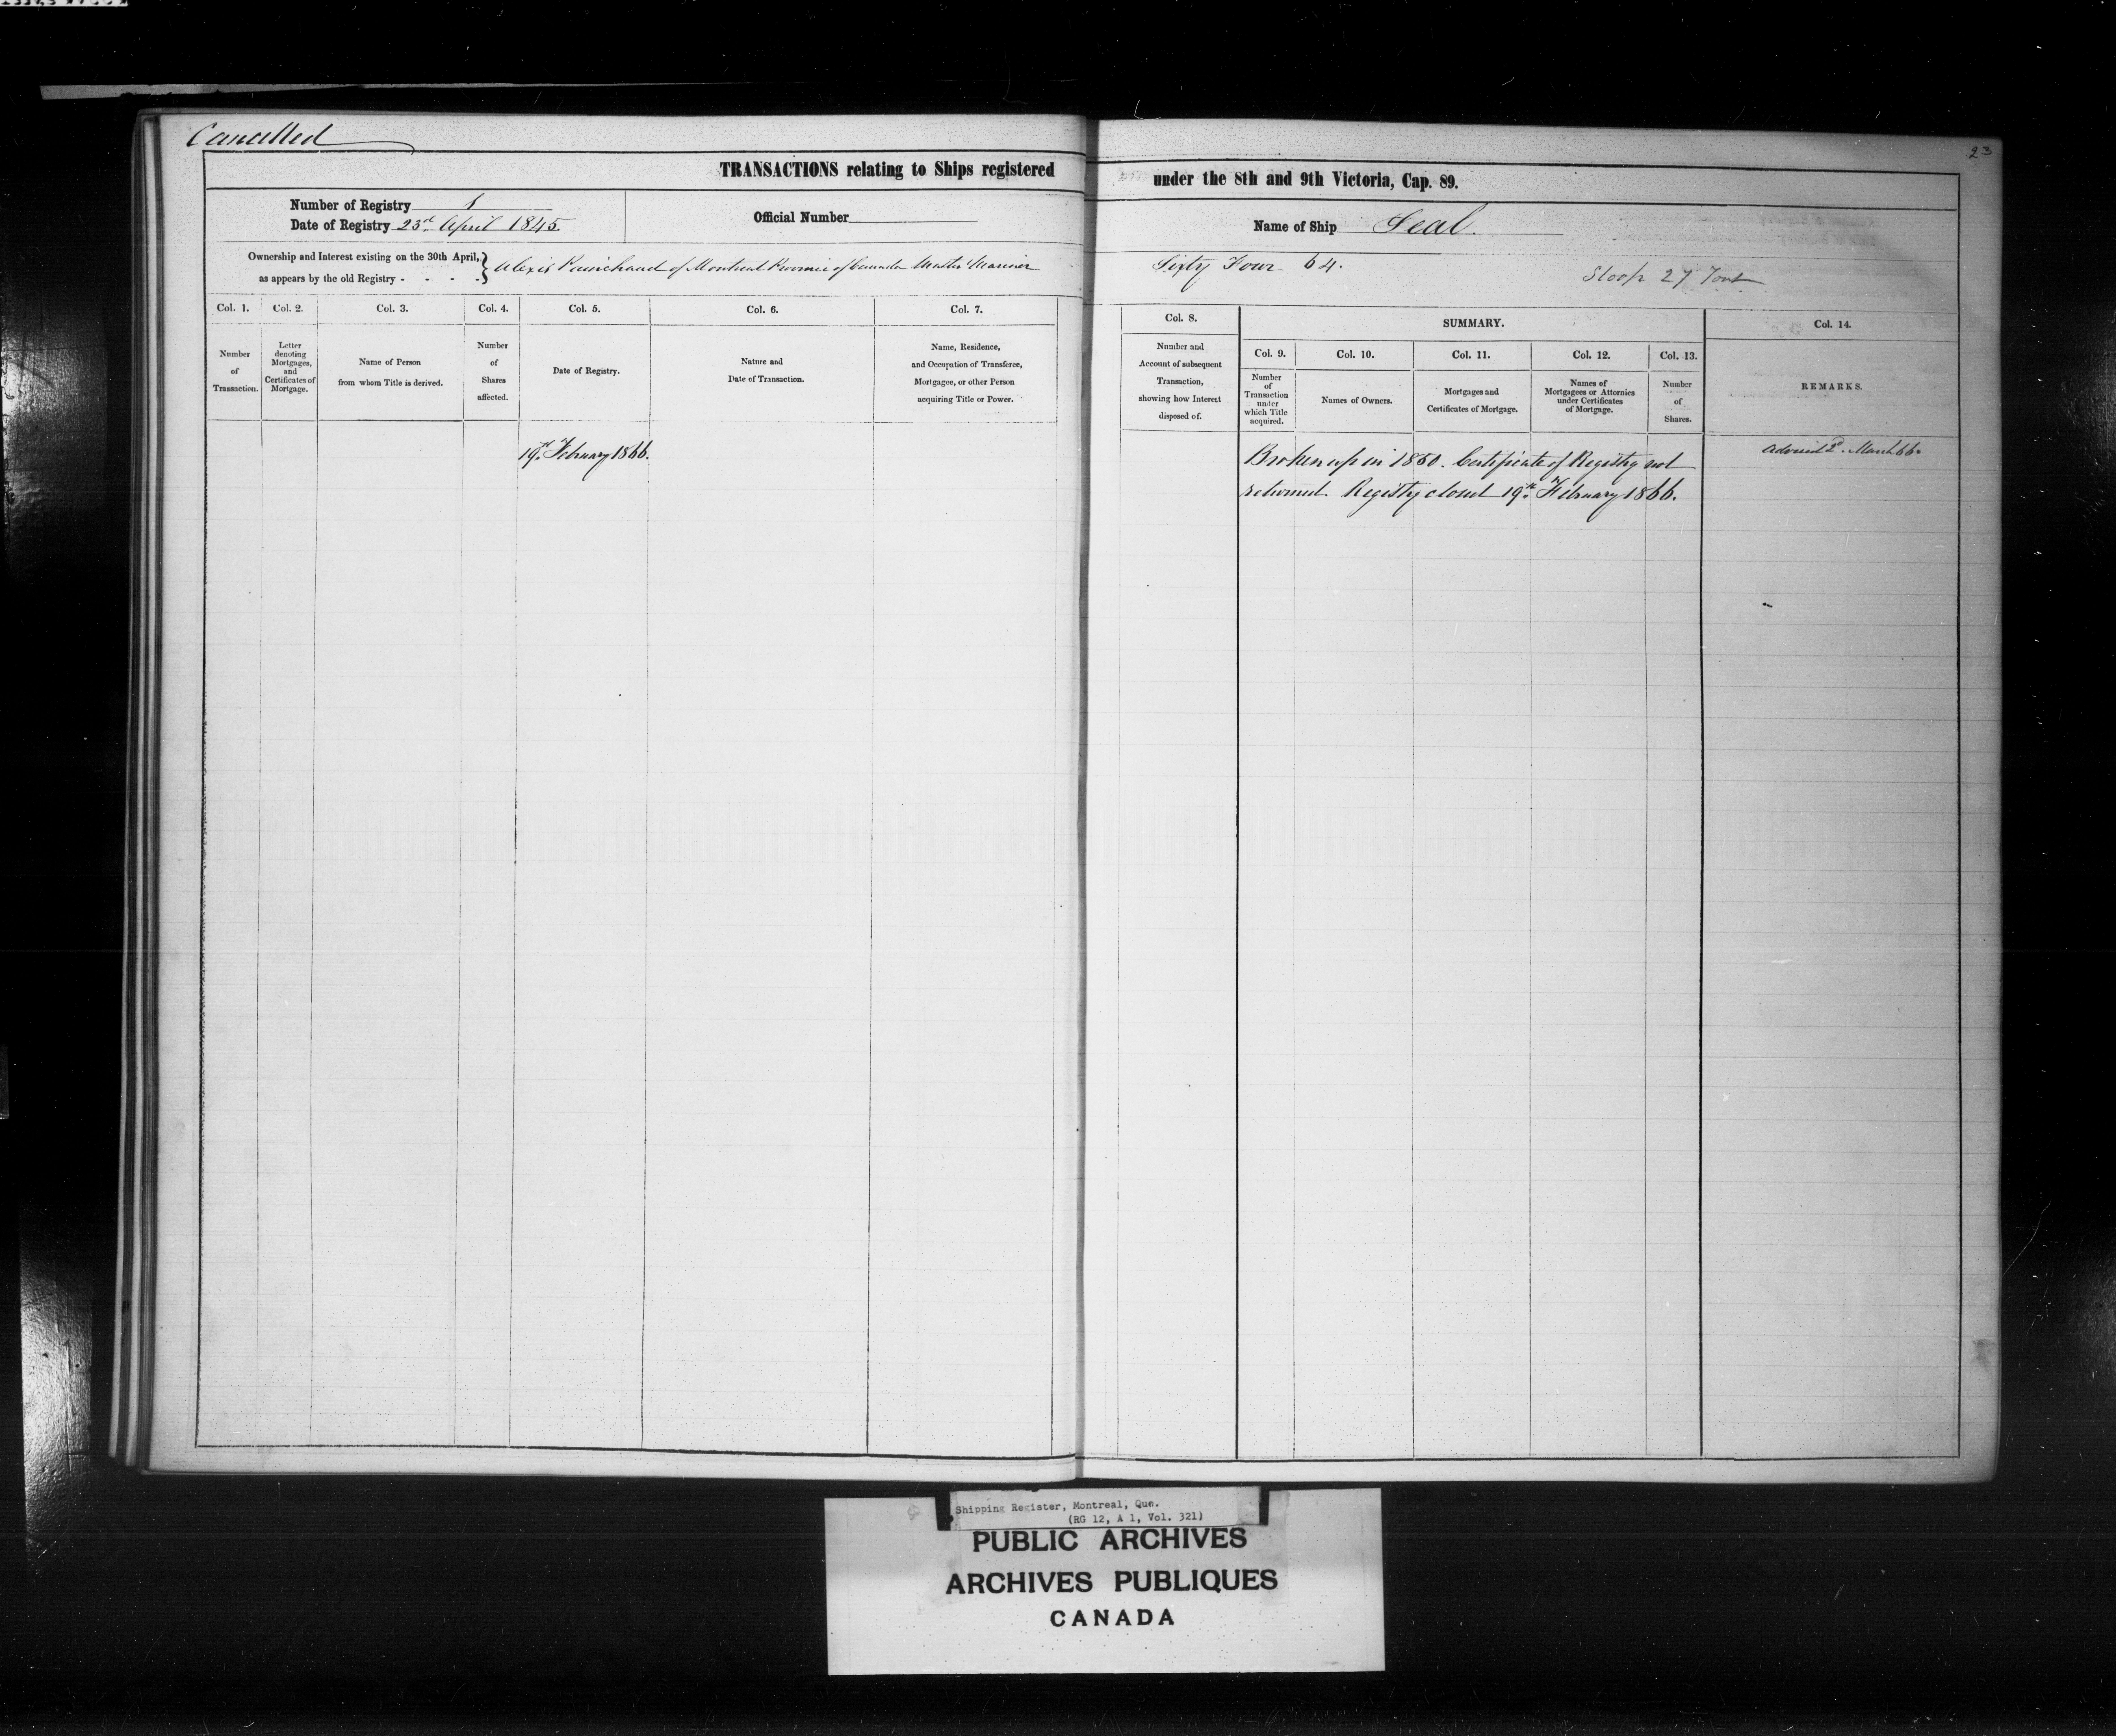 Cancelled
23
TRANSACTIONS relating to Ships registered under the 8th and 9th Victoria, Cap. 89.
Number of Registry 1
Date of Registry 23rd April 1845.
Official Number
Name of Ship Seal.
Ownership and Interest existing on the 30th April,
as appears by the old Registry - - - -
Alexis of Montreal Province of Canada Master Mariner Sixty Four 64.
Sloop 27 Tons
Col. 1.
Number
of
Transaction.
Col. 2.
Letter
denoting
Mortgages,
and
Certificates of
Mortgage.
Col. 3.
Name of Person
from whom Title is derived.
Col. 4.
Number
of
Shares
affected.
Col. 5.
Date of Registry.
Col. 6.
Nature and
Date of Transaction.
Col. 7.
Name, Residence,
and Occupation of Transferee,
Mortgagee, or other Person
acquiring Title or Power.
Col. 8.
Number and
Account of subsequent
Transaction,
showing how Interest
disposed of.
SUMMARY.
Col. 9.
Number
of
Transaction
under
which Title
acquired.
Col. 10.
Names of Owners.
Col. 11.
Mortgages and
Certificates of Mortgage.
Col. 12.
Names of
Mortgagees or Attornies
under Certificates
of Mortgage.
Col. 13.
Number
of
Shares.
Col. 14.
REMARKS.
19th February 1866.
Broken up in 1860. Certificate of Registry not
returned. Registry closed 19th February 1866.
Advised 2d. March 66.
Shipping Register, Montreal, Que.
(RG 12, A 1, Vol. 321)
PUBLIC ARCHIVES
ARCHIVES PUBLIQUES
CANADA